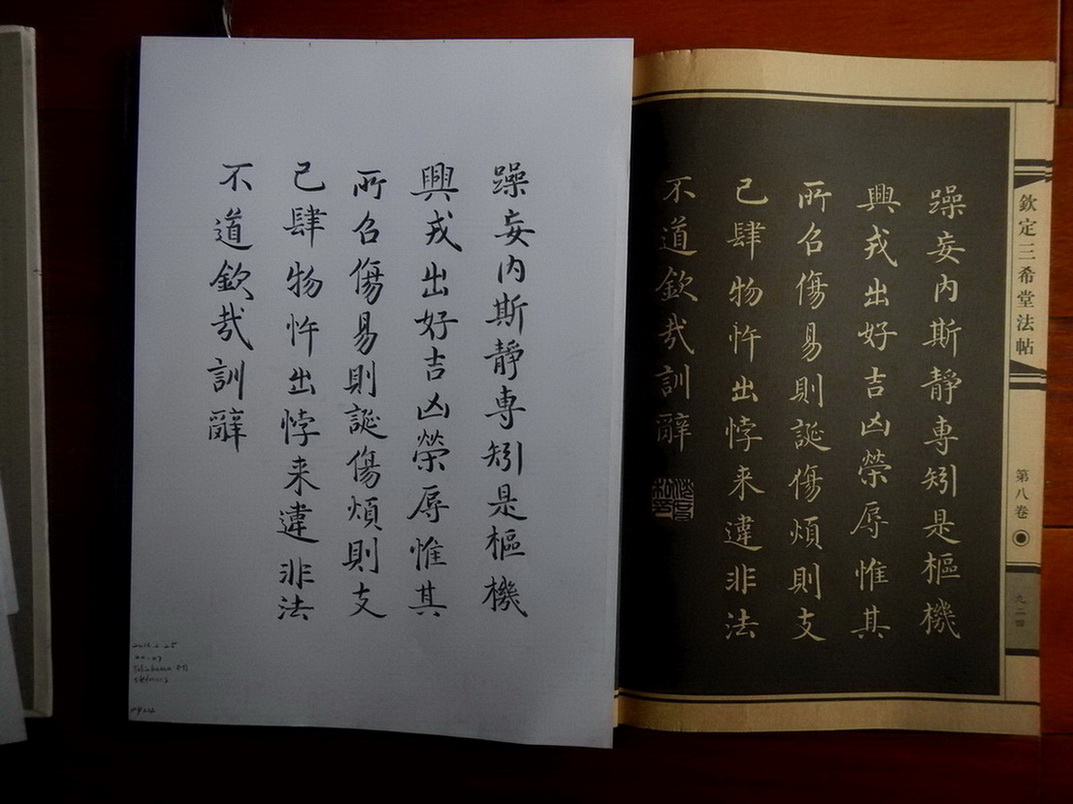 躁妄内斯靜専矧是樞機
興戎出好吉凶榮辱惟其
所召傷易則誕傷煩則支
己肆物忤出悖来違非法
不道欽哉訓辭
躁妄内斯靜専矧是樞機
興戎出好吉凶榮辱惟其
所召傷易則誕傷煩則支
己肆物忤出悖来違非法
不道欽哉訓辭
欽定三希堂法帖
第八卷
九二四